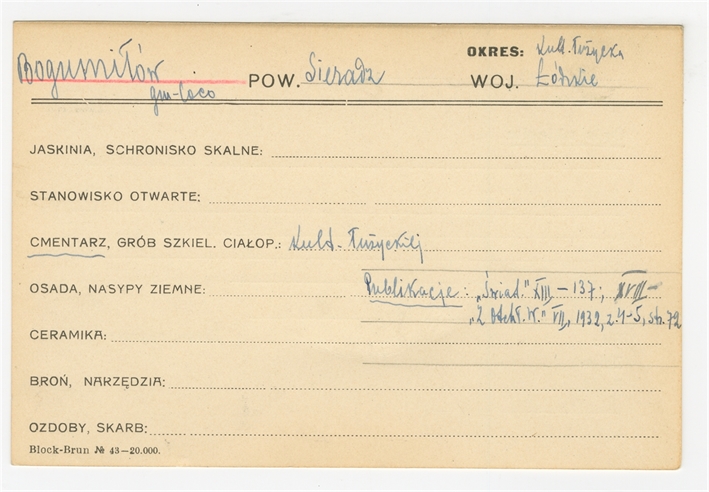 OKRES: Kult. Łużycka
Bogumiłów POW. Sieradz WOJ. Łódzkie
gm-loco
JASKINIA, SCHRONISKO SKALNE:
STANOWISKO OTWARTE:
CMENTARZ, GRÓB SZKIEL. CIAŁOP.: Kult. Łużyckiej
OSADA, NASYPY ZIEMNE: Publikacje: „Świat." XIII – 137; XVII –
„Z Otchł. W." VII, 1932, z. 4-5, str. 72
CERAMIKA:
BROŃ, NARZĘDZIA:
OZDOBY, SKARB:
Block-Brun № 43–20.000.